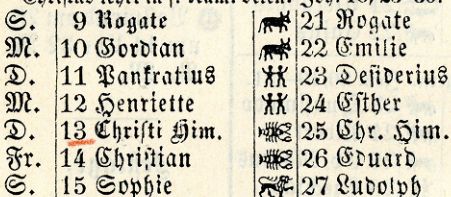 S. 9 Rogate 21 Rogate
M. 10 Gordian 22 Emilie
D. 11 Pankratius 23 Desiderius
M. 12 Henriette 24 Esther
D. 13 Christi Him. 25 Chr. Him.
Fr. 14 Christian 26 Eduard
S. 15 Sophie 27 Ludolph